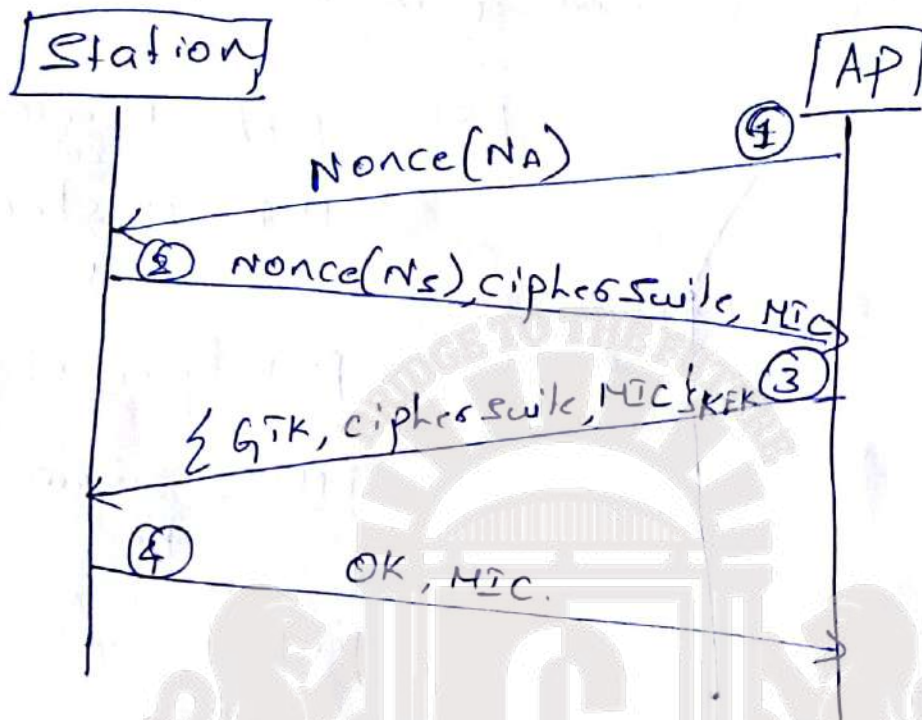 Station
AP
①
Nonce(NA)
② Nonce(Ns), cipher Suite, MIC
③
{ GTK, cipher suite, MIC}KEK
④
OK, MIC.
BRIDGE TO THE FUTURE